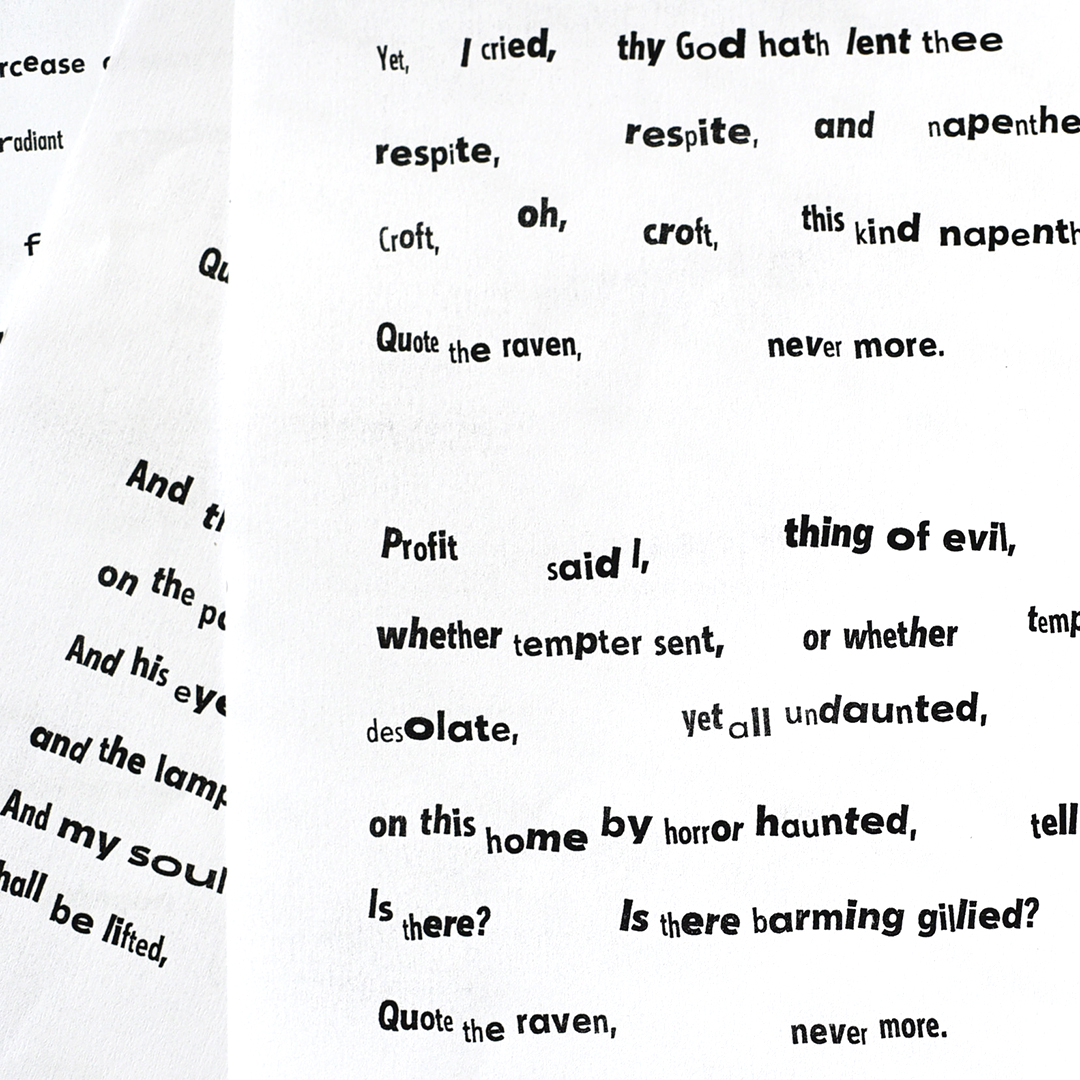 rcease
radiant
f
Qu
And th
on the po
And his eye
and the lamp
And my soul
hall be lifted,
Yet, I cried, thy God hath lent thee
respite, respite, and napenthe
Croft, oh, croft, this kind napenth
Quote the raven, never more.
Profit said I, thing of evil,
whether tempter sent, or whether temp
desolate, yet all undaunted,
on this home by horror haunted, tell
Is there? Is there barming gillied?
Quote the raven, never more.